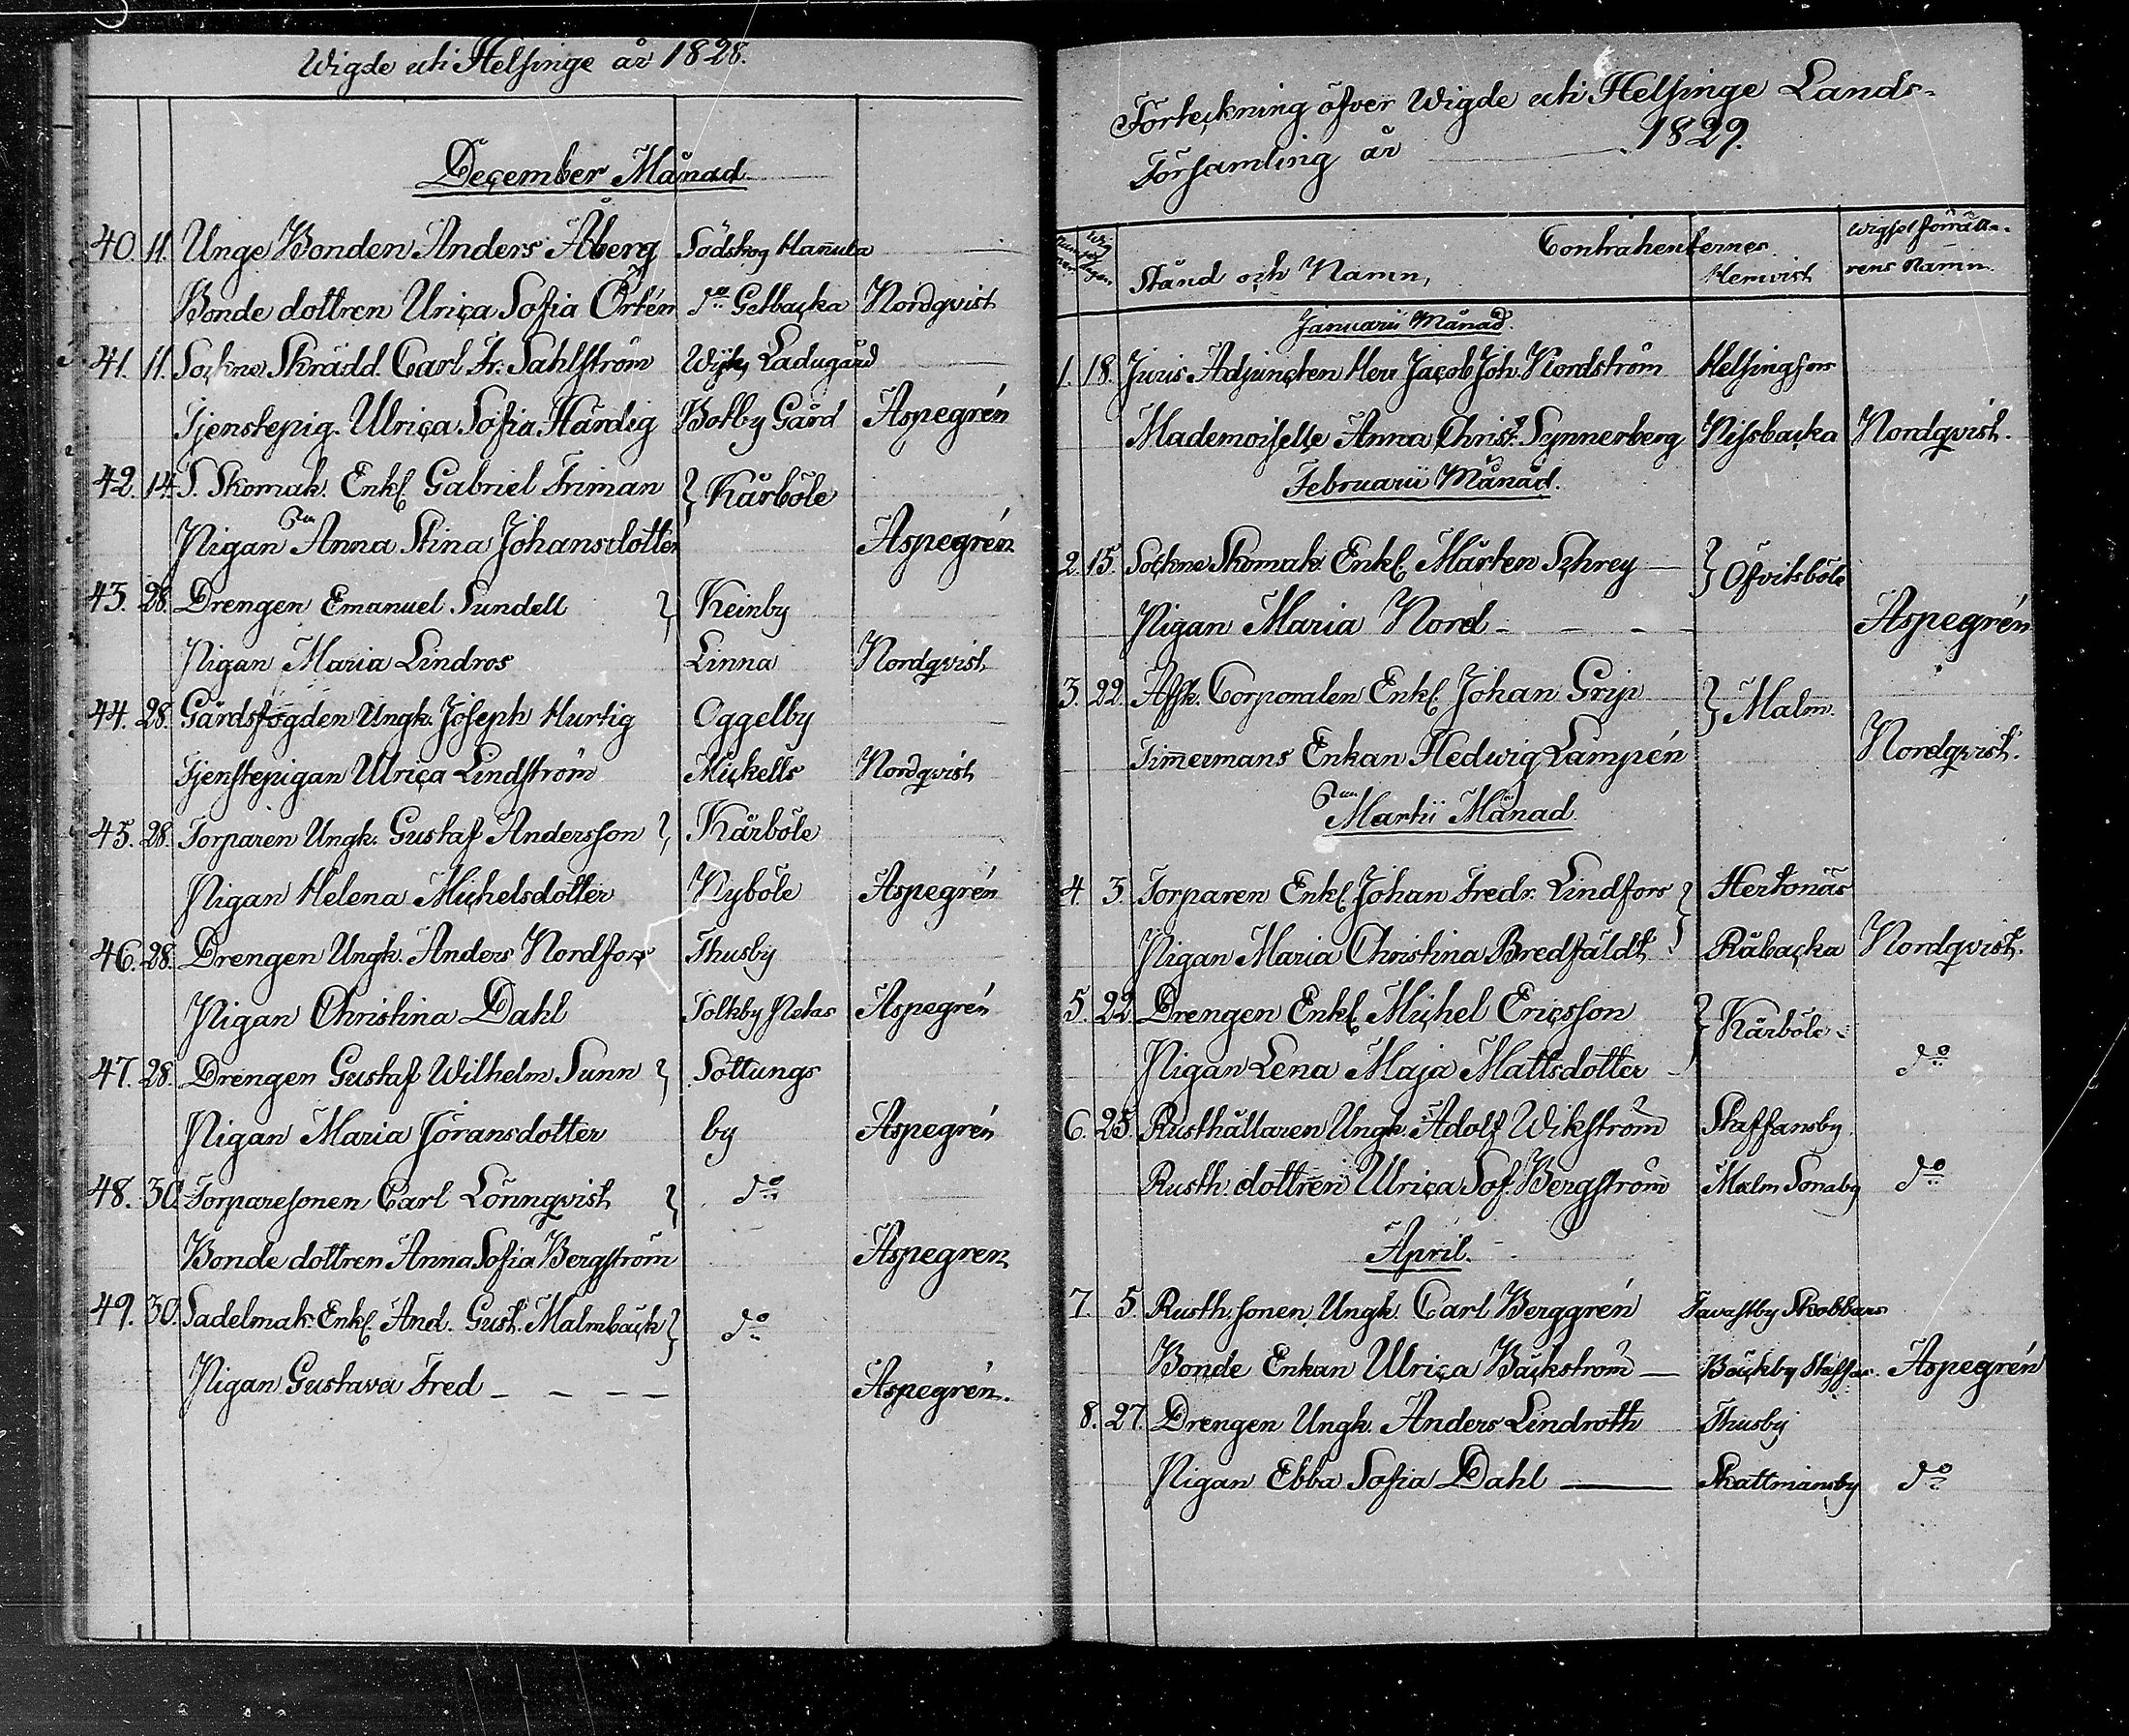 Wigde uti Helsinge år 1828.
December Månad
40. 11. Unge Bonden Anders Åberg Sådskog Hannula
Bonde dottren Ulrica Sofia Örtén do Getbacka Nordqvist
41. 11. Sockne Skrädd. Carl Fr. Sahlström Wijks Ladugård
Tjenstepig. Ulrica Sofia Härdig Botby Gård Aspegrén
42. 14. S. Skomak. Enkl. Gabriel Friman } Kårböle
Pigan Anna Stina Johansdotter Aspegrén
43. 28. Drengen Emanuel Sundell } Keinby
Pigan Maria Lindros Linna Nordqvist
44. 28. Gårdsfogden Ungk. Joseph Hurtig Oggelby
Tjenstepigan Ulrica Lindström Mickells Nordqvist
45. 28. Torparen Ungk. Gustaf Andersson } Kårböle
Pigan Helena Michelsdotter Nyböle Aspegrén
46. 28. Drengen Ungk. Anders Nordfors Thusby
Pigan Christina Dahl Tolkby Petas Aspegrén
47. 28. Drengen Gustaf Wilhelm Sunn } Sottungs
Pigan Maria Jöransdotter by Aspegrén
48. 30. Torparesonen Carl Lönnqvist } do
Bonde dottren Anna Sofia Bergström Aspegren
49. 30. Sadelmak. Enkl. And. Gust. Malmbäck } do
Pigan Gustava Fred - - - - Aspegrén.
Förteckning öfver Wigde uti Helsinge Lands-
Församling år 1829.
Contrahenternes Wigselförrätta-
Stånd och Namn, Hemvist rens Namn.
Januarii Månad.
1. 18. Juris Adjuncten Herr Jacob Joh. Nordström Helsingfors
Mademoiselle Anna Christ. Synnerberg Nissbacka Nordqvist.
Februarii Månad.
2. 15. Sockne Skomak. Enkl. Mårten Schrey } Öfvitsböle
Pigan Maria Nord - - - - Aspegrén
3. 22. Afsk. Corporalen Enkl. Johan Grip } Malm.
Timmermans Enkan Hedwig Lampén Nordqvist.
Martii Månad
4. 3. Torparen Enkl. Johan Fredr. Lindfors } Hertonäs
Pigan Maria Christina Bredfäldt Råbacka Nordqvist.
5. 22. Drengen Enkl. Michel Ericsson } Kårböle
Pigan Lena Maja Mattsdotter do
6. 25. Rusthållaren Ungk. Adolf Wikström Staffansby.
Rusth. dottren Ulrica Sof. Bergström Malm Sonaby do
April.
7. 5. Rusth. sonen Ungk. Carl Berggrén Tavastby Skobbars
Bonde Enkan Ulrica Bäckström Bäckby Staffas. Aspegrén
8. 27. Drengen Ungk. Anders Lindroth Thusby
Pigan Ebba Sofia Dahl Skattmansby do